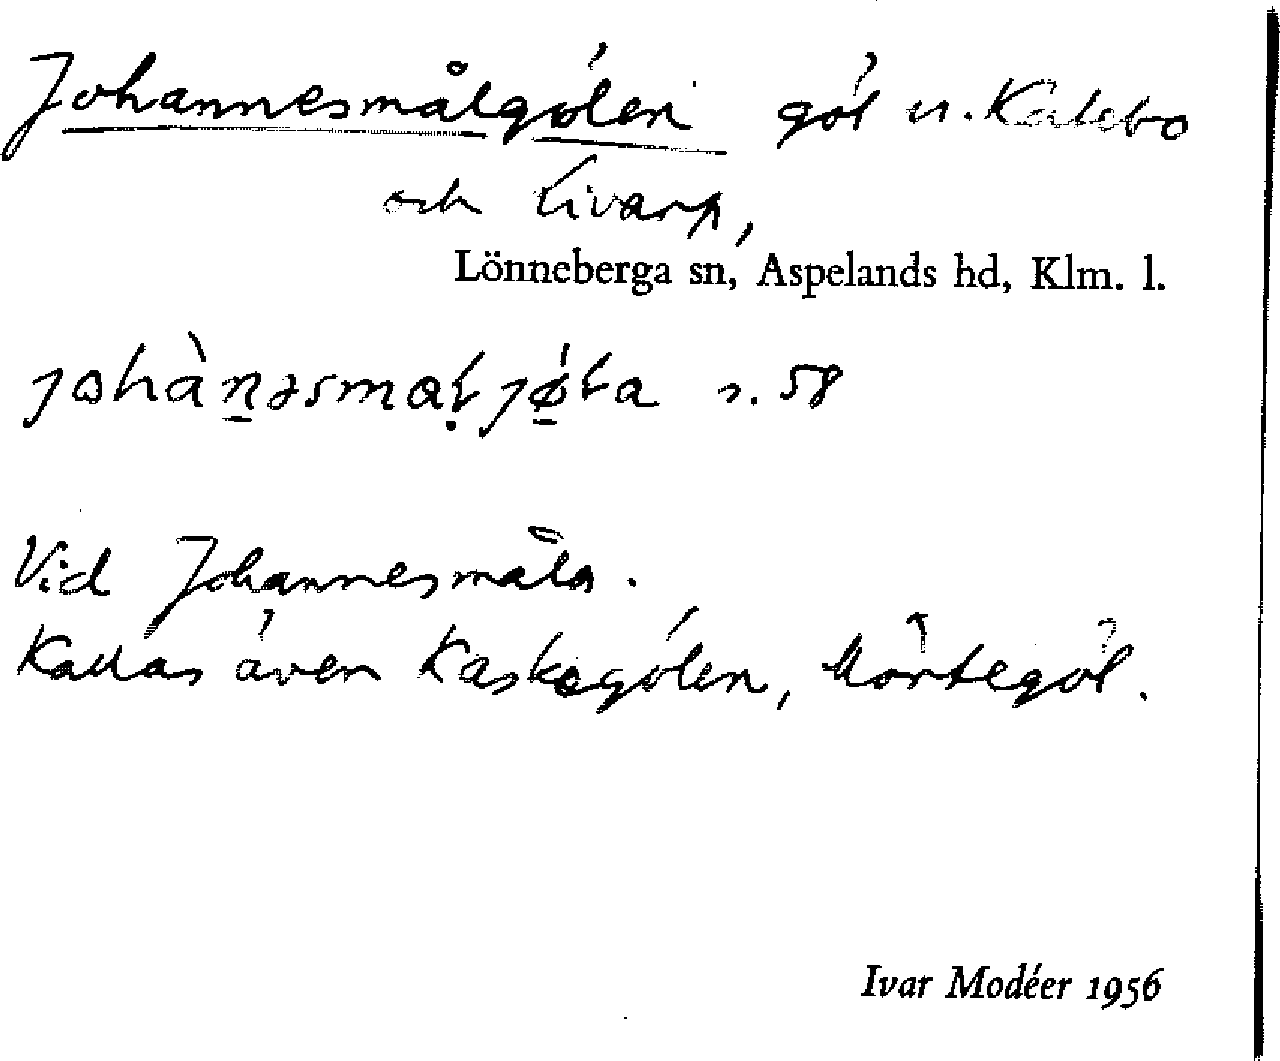 Johannesmålgölen göl u. Kalebo
och Livarp,
Lönneberga sn, Aspelands hd, Klm. l.
s. 58
Vid Johannesmåla.
Kallas även Kaskegölen, Mörtegöl.
Ivar Modéer 1956